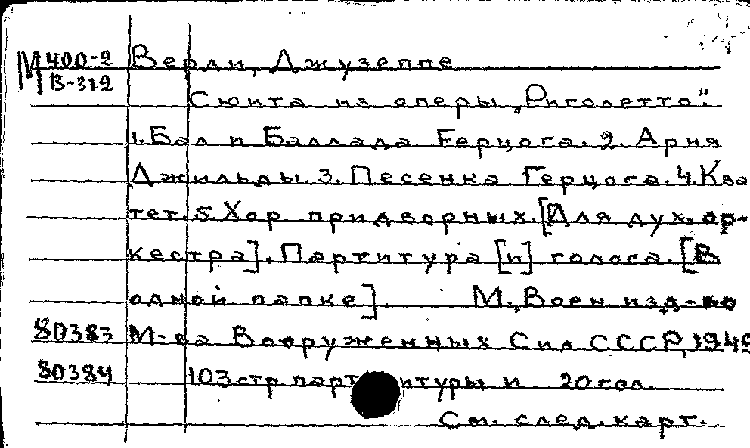 М 400-2 Верди, Джузеппе
В-312
Сюита из оперы „Риголетто".
1. Бал и Баллада Герцога. 2. Ария
Джильды. 3. Песенка Герцога. 4. Ква
тет. 5. Хор придворных. [Для дух. ор-
кестра]. Партитура [и] голоса. [В
одной папке]. М., Воен. изд-во
80383 М-ва Вооруженных Сил СССР, 1949
80384 103 стр. партитуры и 20 гол.
См. след. карт.